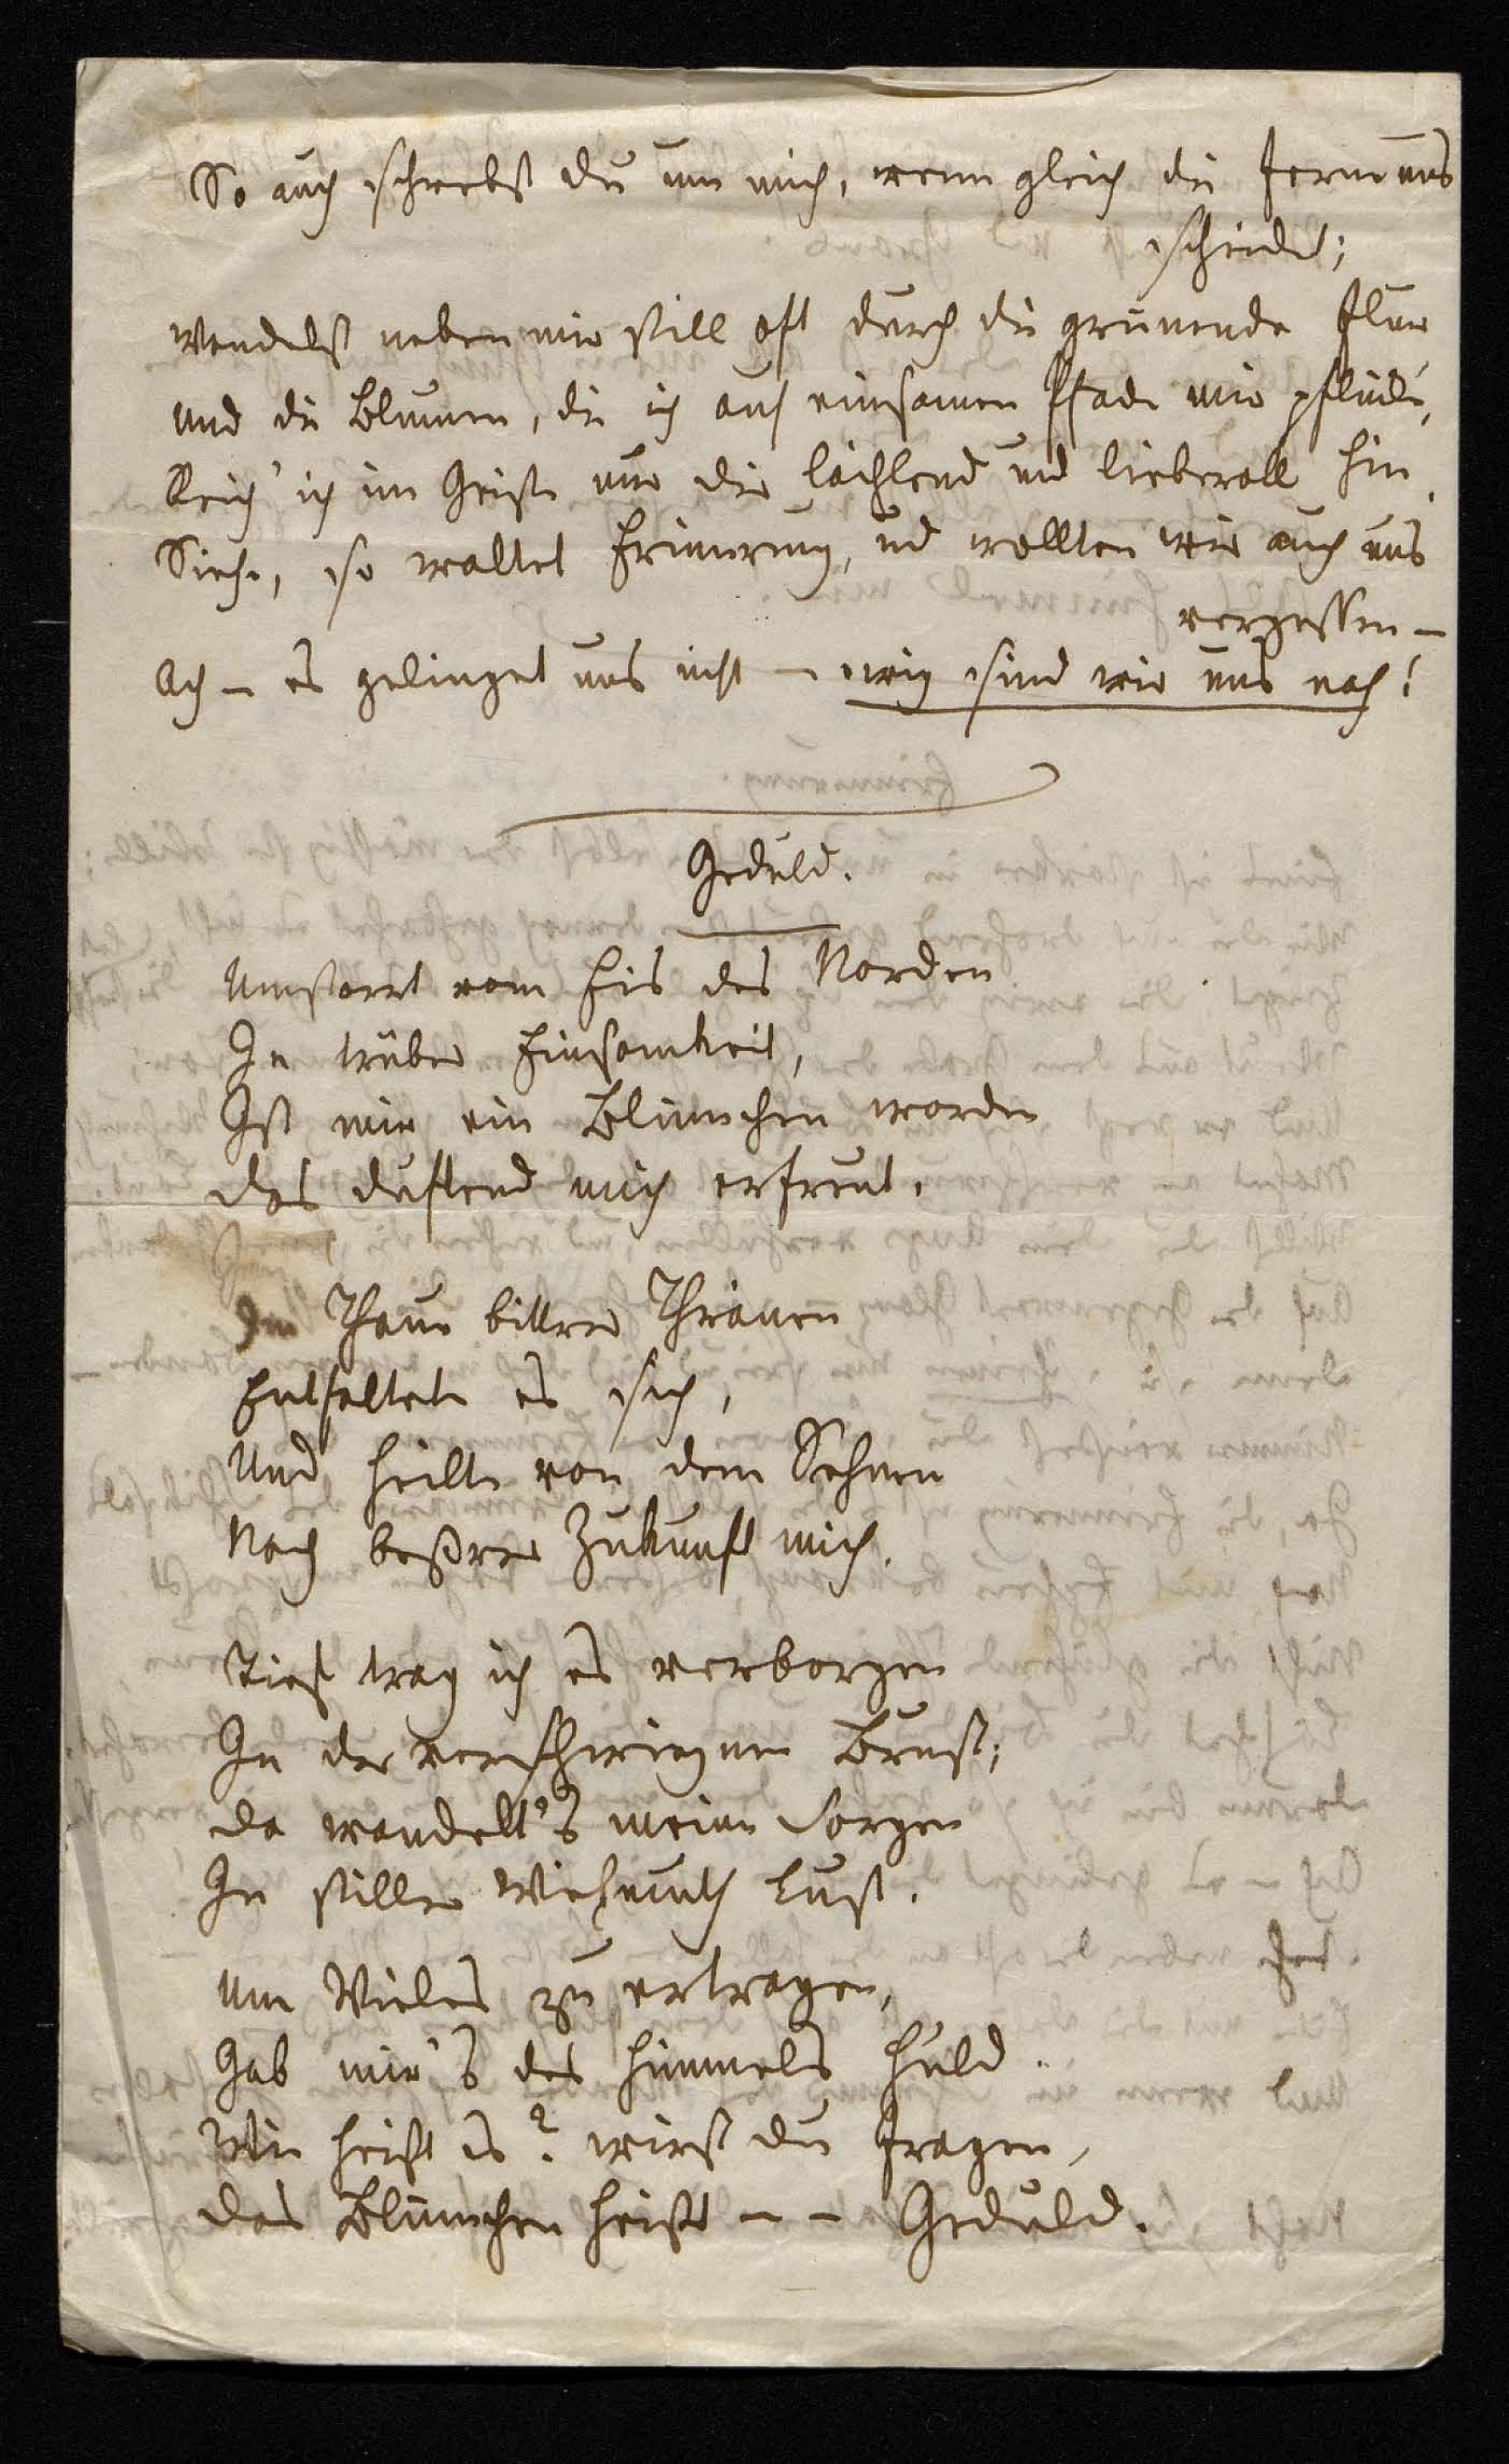 So auch schwebst du um mich, wenn gleich die Ferne uns
scheidet;
Wandelst neben mir still oft durch die grünende Flur
Und die Blumen, die ich auf einsamen Pfade mir pflücke,
Reich' ich im Geiste nur dir lächlend und liebevoll hin.
Siehe, so waltet Erinnerung, und wollten wir auch uns
vergessen –
Ach – es gelinget uns nicht – ewig sind wir uns nah!
Geduld.
Umstarrt vom Eis des Norden
In trüber Einsamkeit,
Ist mir ein Blümchen worden
Das duftend mich erfreut.
Im Thaue bittrer Thränen
Entfaltete es sich,
Und heilte von dem Sehnen
Nach beßrer Zukunft mich.
Tief trag ich es verborgen
In der verschwiegnen Brust;
Da wandelt's meine Sorgen
In stiller Wehmuth Lust.
Um Vieles zu ertragen,
Gab mir's des Himmels Huld.
Wie heißt es? wirst du fragen,
Das Blümchen heißt – – Geduld.